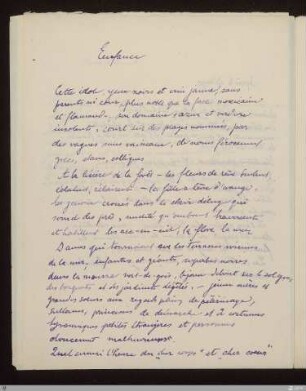 Enfance
Cette idole, yeux noirs et crin jaune, sans
parents ni cour, plus noble que la fable, mexicaine
et flamande ; son domaine, azur et verdure
insolents, court sur des plages nommées, par
des vagues sans vaisseaux, de noms férocement
grecs, slaves, celtiques.
A la lisière de la forêt – les fleurs de rêve tintent,
éclatent, éclairent, – la fille à lèvre d'orange,
les genoux croisés dans le clair déluge qui
sourd des prés, nudité qu'ombrent, traversent
et habillent les arcs-en-ciel, la flore, la mer.
Dames qui tournoient sur les terrasses voisines
de la mer, enfantes et géantes, superbes noires
dans la mousse vert-de-gris, bijoux debout sur le sol gras
des bosquets et des jardinets dégelés, – jeunes mères et
grandes soeurs aux regards pleins de pèlerinages,
sultanes, princesses de démarche et de costumes
tyranniques petites étrangères et personnes
doucement malheureuses.
Quel ennui, l'heure du "cher corps" et "cher coeur"